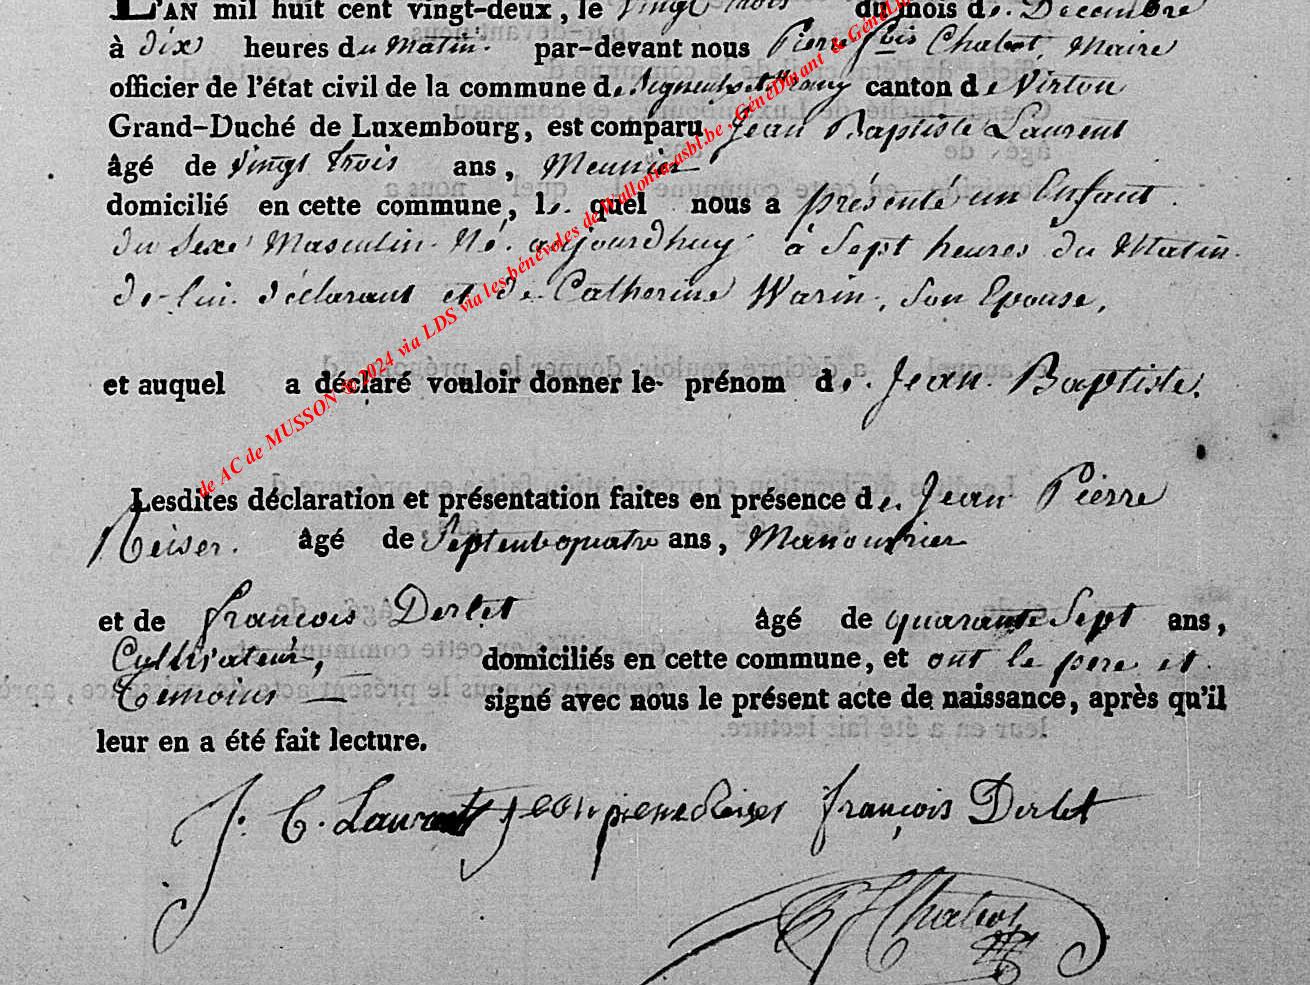 L'AN mil huit cent vingt-deux, le vingt trois du mois de. Decembre
à dix heures du Matin. par-devant nous Pierre fois Chalot, Maire
officier de l'état civil de la commune de canton de Virton
Grand-Duché de Luxembourg, est comparu Jean Baptiste Laurent
âgé de vingt trois ans, Meunier
domicilié en cette commune, le. quel nous a présenté un Enfant.
du Sexe Masculin. Né. aujourdhuy à Sept heures du Matin.
de lui déclarant et de Catherine Warin, Son Epouse,
et auquel a déclaré vouloir donner le prénom de. Jean Baptiste.
Lesdites déclaration et présentation faites en présence de. Jean Pierre
Reiser. âgé de Septente quatre ans, Manouvrier
et de françois Derlet âgé de quarante Sept ans,
Cultivateur, domiciliés en cette commune, et ont le pere et
Temoins — signé avec nous le présent acte de naissance, après qu'il
leur en a été fait lecture.
J. B. Laurent Jean pierre Reiser françois Derlet
PF Chalot
de AC de MUSSON © 2024 via LDS via les bénévoles de Wallonia-asbl.be - GénéDinant &